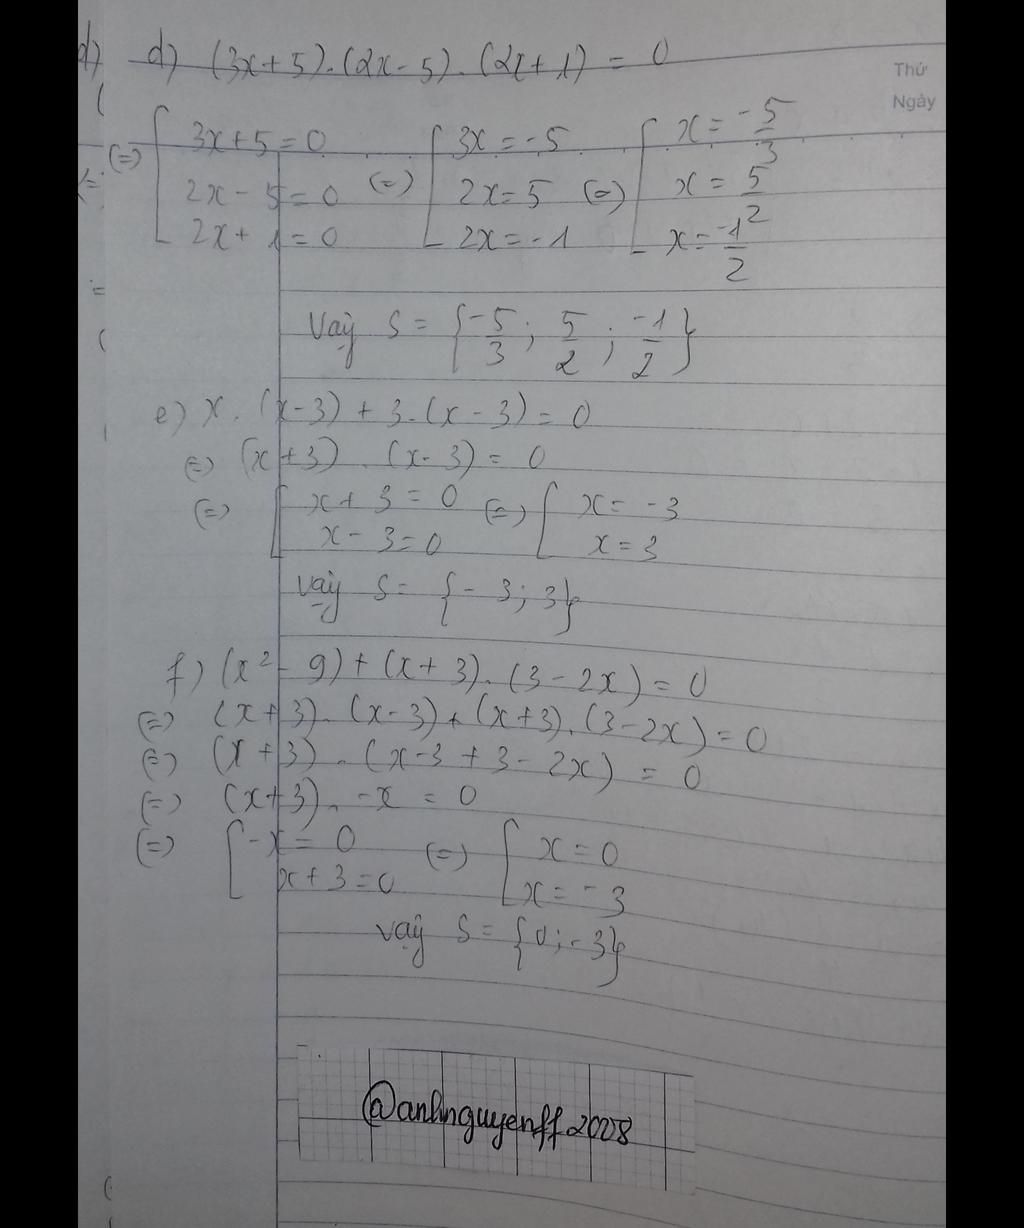 d) d) (3x+5).(2x-5).(2x+1) = 0
Thứ
Ngày
(
(=) [ 3x+5=0 (=) [ 3x=-5 (=) [ x=-5/3
2x-5=0 2x=5 x=5/2
2x+1=0 2x=-1 x=-1/2
=
Vaỵ̂ S = {-5/3; 5/2; -1/2}
(
e) x.(x-3)+3.(x-3)=0
(=) (x+3).(x-3)=0
(=) [ x+3=0 (=) [ x=-3
x-3=0 x=3
vaỵ̂ S={-3;3}
f) (x²-9)+(x+3).(3-2x)=0
(=) (x+3).(x-3)+(x+3).(3-2x)=0
(=) (x+3).(x-3+3-2x)=0
(=) (x+3).-x=0
(=) [ -x=0 (=) [ x=0
x+3=0 x=-3
vaỵ̂ S={0;-3}
@anhnguyenff2008
(